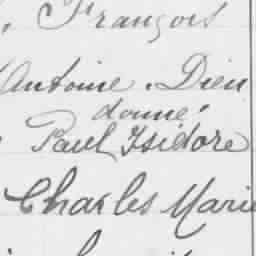 , François
Antoine. Dieu
donné
Paul Isidore
Charles Marie